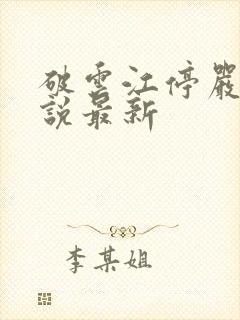 破雲江停嚴
說最新
李某姐